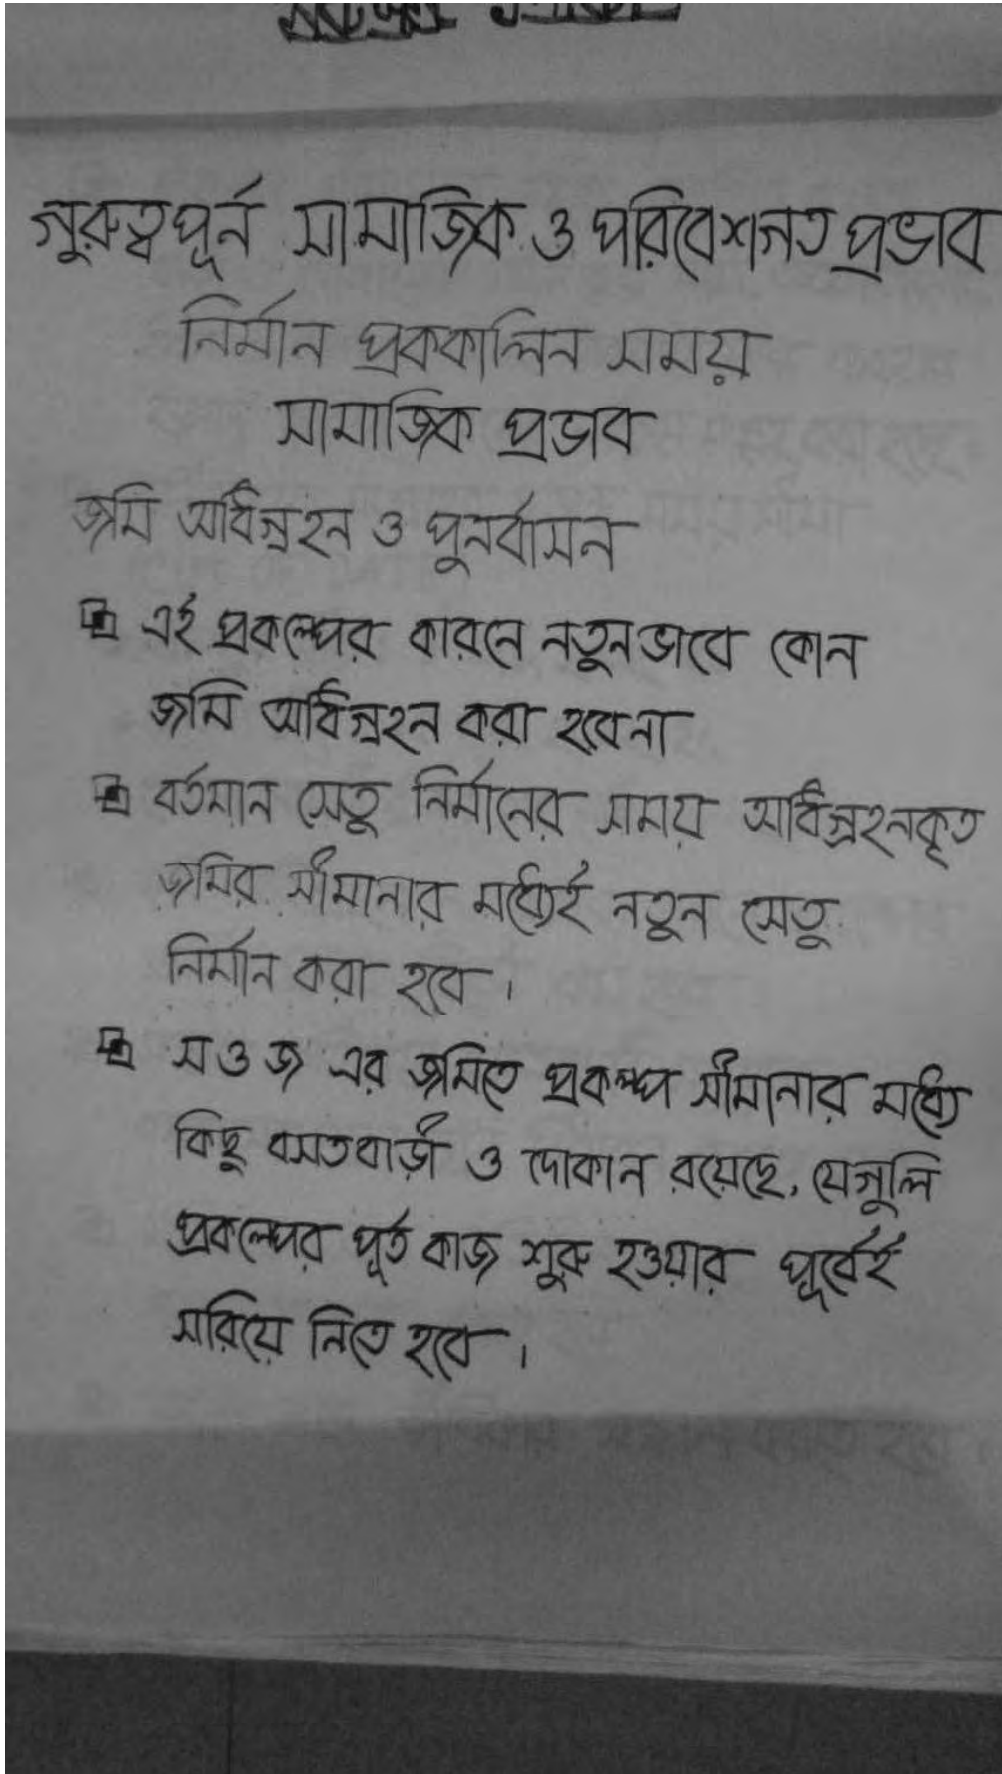 গুরুত্বপূর্ন সামাজিক ও পরিবেশগত প্রভাব
নির্মান প্রককালিন সময়
সামাজিক প্রভাব
জমি অধিগ্রহন ও পুনর্বাসন
এই প্রকল্পের কারনে নতুনভাবে কোন
জমি অধিগ্রহন করা হবেনা
বর্তমান সেতু নির্মানের সময় অধিগ্রহনকৃত
জমির সীমানার মধ্যেই নতুন সেতু
নির্মান করা হবে।
সওজ এর জমিতে প্রকল্প সীমানার মধ্যে
কিছু বসতবাড়ী ও দোকান রয়েছে, যেগুলি
প্রকল্পের পূর্ত কাজ শুরু হওয়ার পূর্বেই
সরিয়ে নিতে হবে।